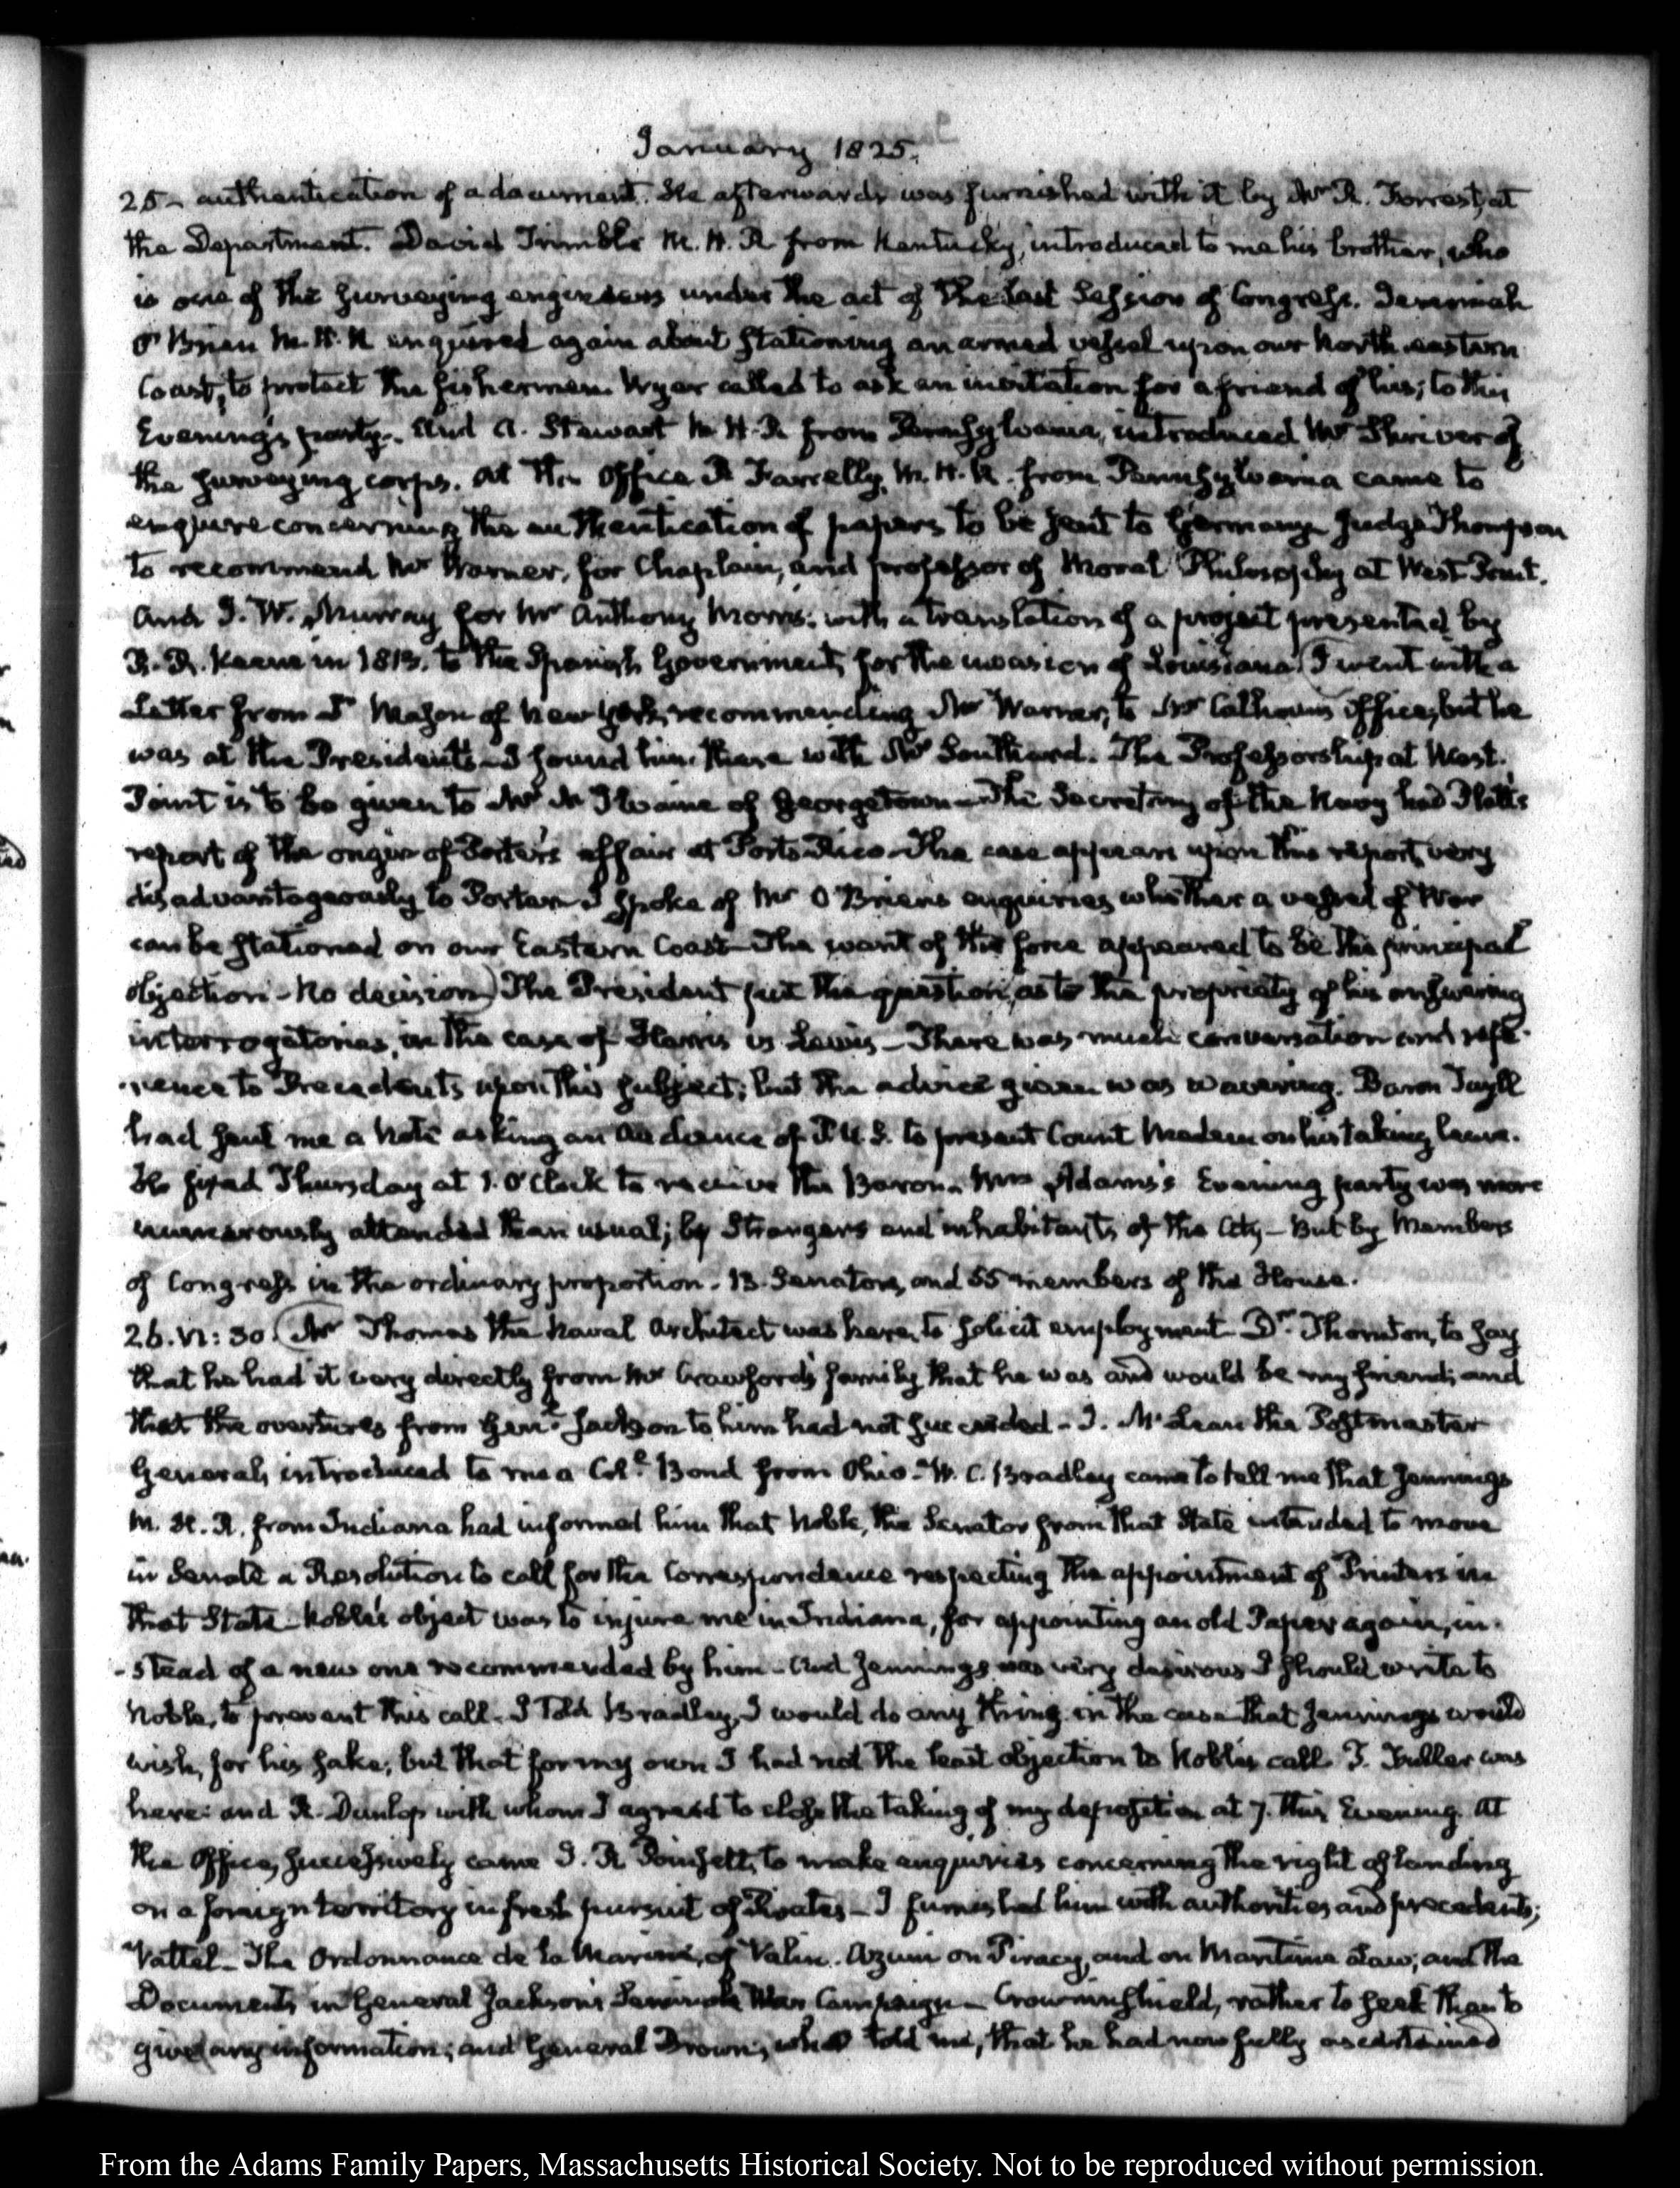 January 1825.
25 - authentication of a document. He afterwards was furnished with it by Mr R. Forrest, at
the Department. David Trimble M. H. R from Kentucky, introduced to me his brother, who
is one of the surveying engineers under the act of the last Session of Congress. Jeremiah
O'Brien M. H. R enquired again about stationing an armed vessel upon our North eastern
Coast, to protect the fishermen. Wyer called to ask an invitation for a friend of his; to this
Evening's party. And A. Stewart M. H. R from Pennsylvania, introduced Mr Shriver of
the surveying corps. At the Office P. Farrelly, M. H. R. from Pennsylvania came to
enquire concerning the authentication of papers to be sent to Germany Judge Thompson
to recommend Mr Warner, for Chaplain, and professor of Moral Philosophy at West Point.
And J. W. Murray for Mr Anthony Morris: with a translation of a project presented by
R. R. Keene in 1813. to the Spanish Government, for the invasion of Louisiana. (I went with a
Letter from J Mason of New York, recommending Mr Warner, to Mr Calhoun's Office, but he
was at the President's - I found him there with Mr Southard. The Professorship at West-
Point is to be given to Mr McIlvaine of Georgetown - The Secretary of the Navy had Platt's
report of the origin of Porter's affair at Porto Rico - The case appears upon this report, very
disadvantageously to Porter - I spoke of Mr O'Brien's enquiries whether a vessel of War
can be stationed on our Eastern Coast - The want of the force appeared to be the principal
objection - No decision) The President put the question, as to the propriety of his answering
interrogatories, in the case of Harris vs Lewis - There was much conversation and refe-
-rence to Precedents upon this subject; but the advice given was wavering. Baron Tuyll
had sent me a Note asking an audience of P.U.S. to present Count Medem on his taking leave.
He fixed Thursday at 1. O'Clock to receive the Baron. Mrs Adams's Evening party was more
numerously attended than usual; by Strangers and inhabitants of the City - But by Members
of Congress in the ordinary proportion. 13. Senators, and 55 members of the House.
26. VI: 30. (Mr Thomas the Naval Architect was here, to solicit employment - Dr. Thornton, to say
that he had it very directly from Mr Crawford's family that he was and would be my friend; and
that the overtures from Genl. Jackson to him had not succeeded - J. McLean the Postmaster
General, introduced to me a Coll. Bond from Ohio - W. C. Bradley came to tell me that Jennings
M. H. R. from Indiana had informed him that Noble, the Senator from that State intended to move
in Senate a Resolution to call for the Correspondence respecting the appointment of Printers in
that State - Noble's object was to injure me in Indiana, for appointing an old Paper again, in-
-stead of a new one recommended by him - And Jennings was very desirous I should write to
Noble, to prevent this call. I told Bradley, I would do any thing in the case that Jennings would
wish, for his sake; but that for my own I had not the least objection to Noble's call. T. Fuller was
here: and R. Dunlop with whom I agreed to close the taking of my deposition at 7. this Evening. At
the Office, successively came J. R Poinsett, to make enquiries concerning the right of landing
on a foreign territory in fresh pursuit of Pirates - I furnished him with authorities and precedents;
Vattel - The Ordonnance de la Marine, of Valin. Azuni on Piracy, and on Maritime Law; and the
Documents in General Jackson's Seminole War Campaign - Crowninshield, rather to seek than to
give any information; and General Brown, who told me, that he had now fully ascertained
From the Adams Family Papers, Massachusetts Historical Society. Not to be reproduced without permission.